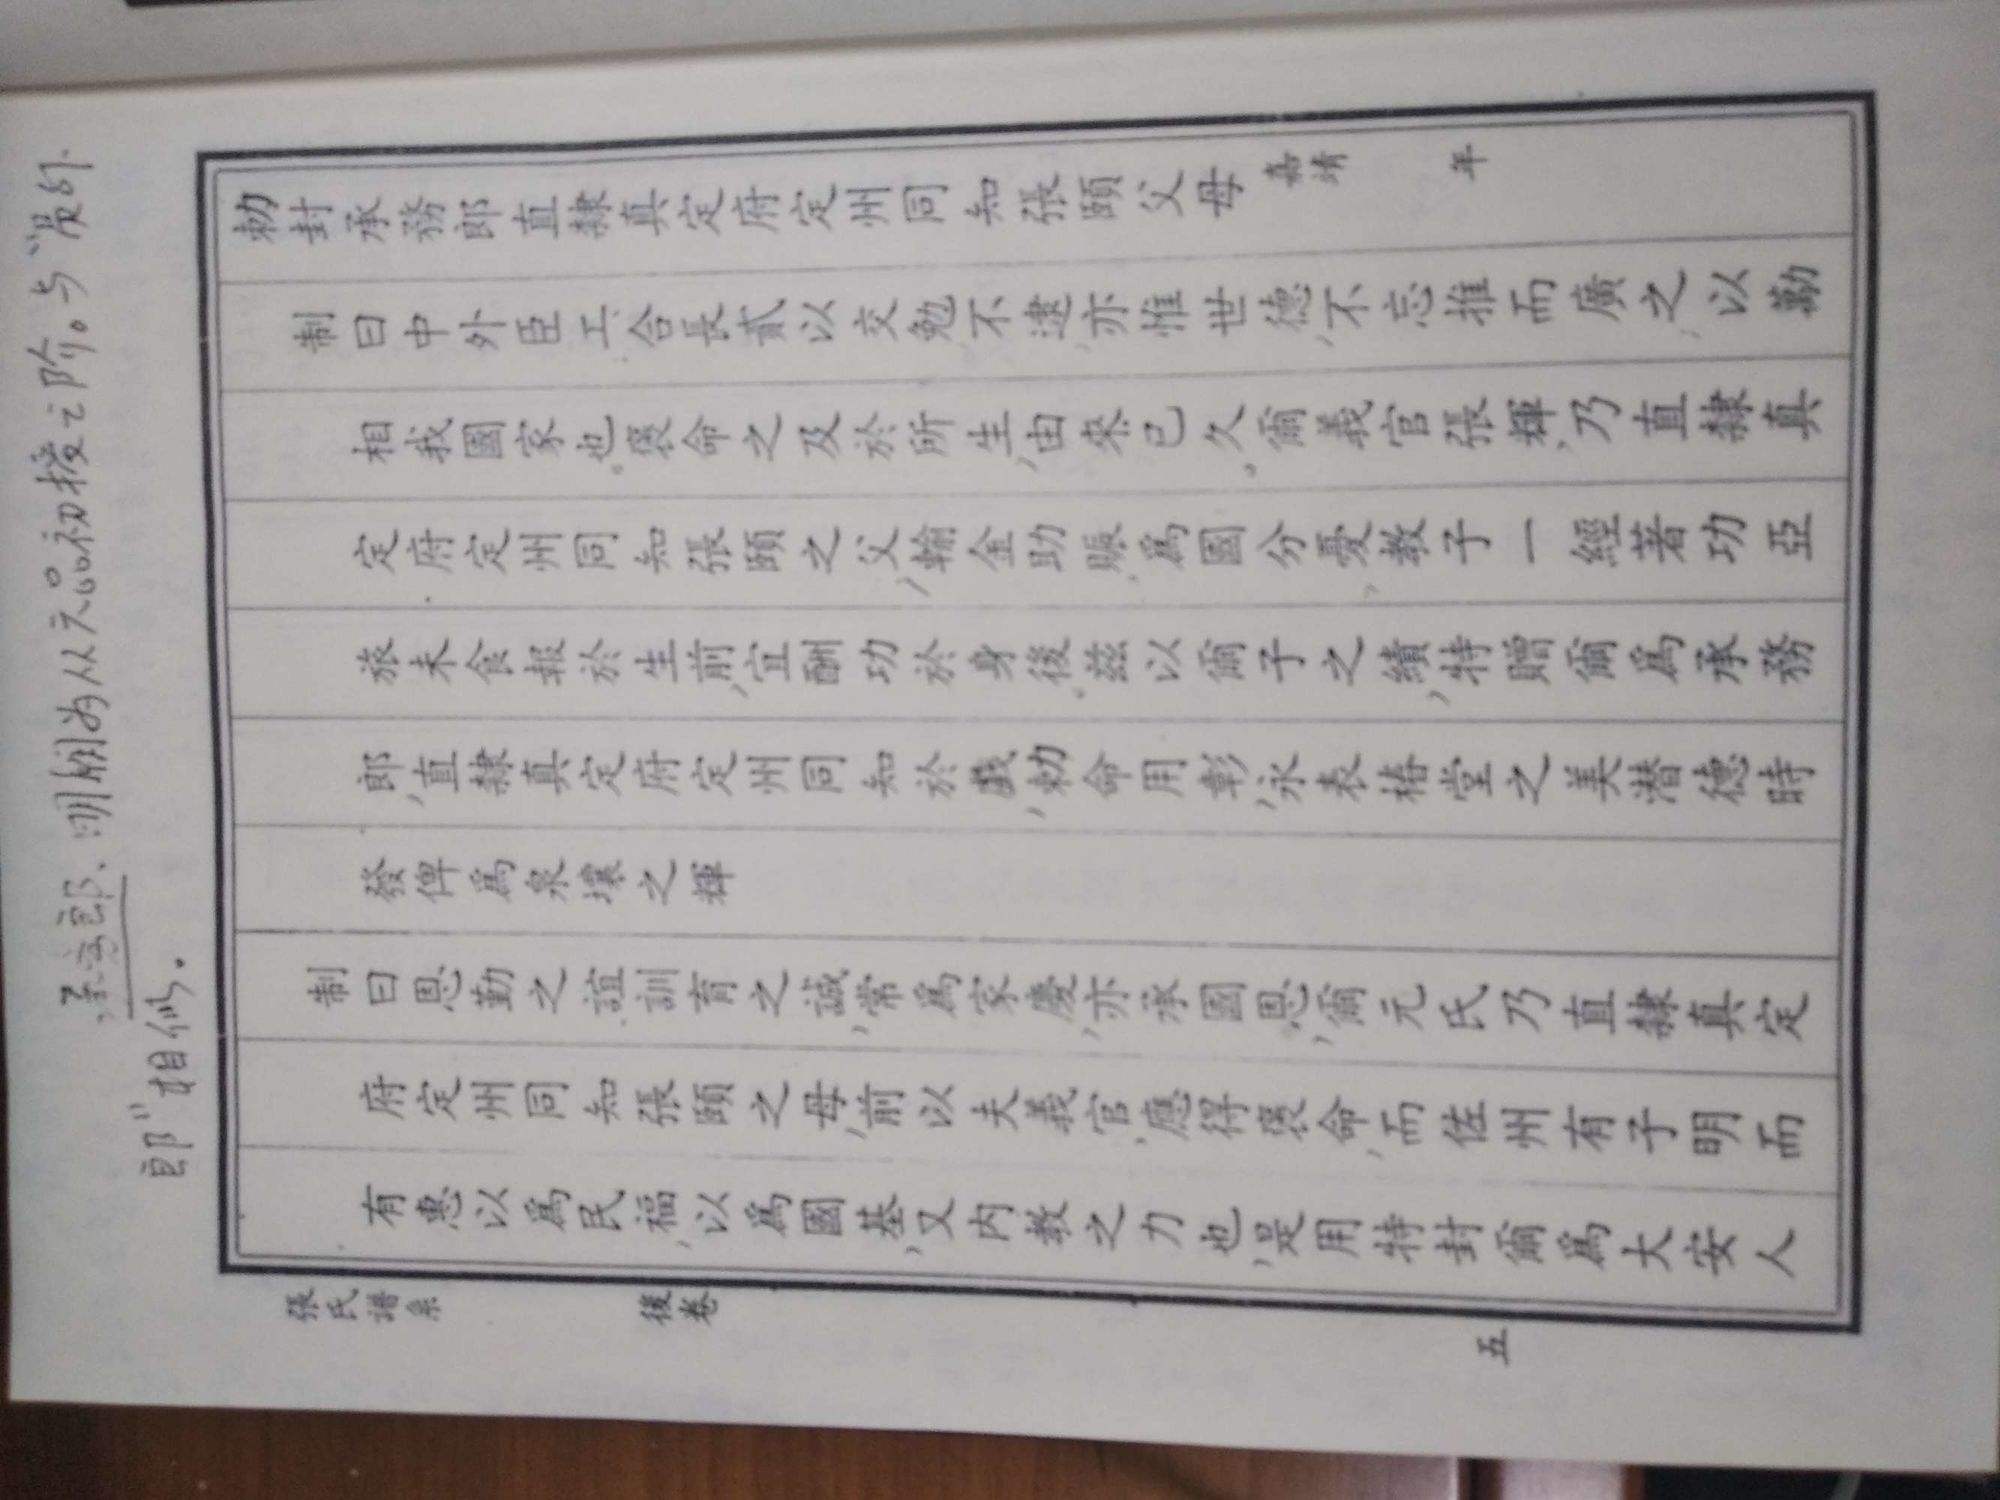 承务郎、明朝为从六品初授之阶。与"员外
郎"相似。
勑封承務郎直隸真定府定州同知張頤父母 嘉靖 年
制曰中外臣工,合長貳以交勉,不逮,亦惟世德,不忘推而廣之,以勤
相我國家也。褒命之及於所生,由來已久。爾義官張輝,乃直隸真
定府定州同知張頤之父,輸金助賑,爲國分憂,教子一經著功亞
旅未食報於生前,宜酬功於身後。兹以爾子之績,特贈爾爲承務
郎,直隸真定府定州同知於戲,勑命用彰,永表椿堂之美潜德時
發俾爲泉壤之輝
制曰恩勤之誼訓育之誠,常爲家慶,亦承國恩,爾元氏乃直隸真定
府定州同知張頤之母,前以夫義官,應得褒命,而佐州有子明而
有惠以爲民福,以爲國基,又内教之力也,是用特封爾爲大安人
張氏譜系 後卷 五